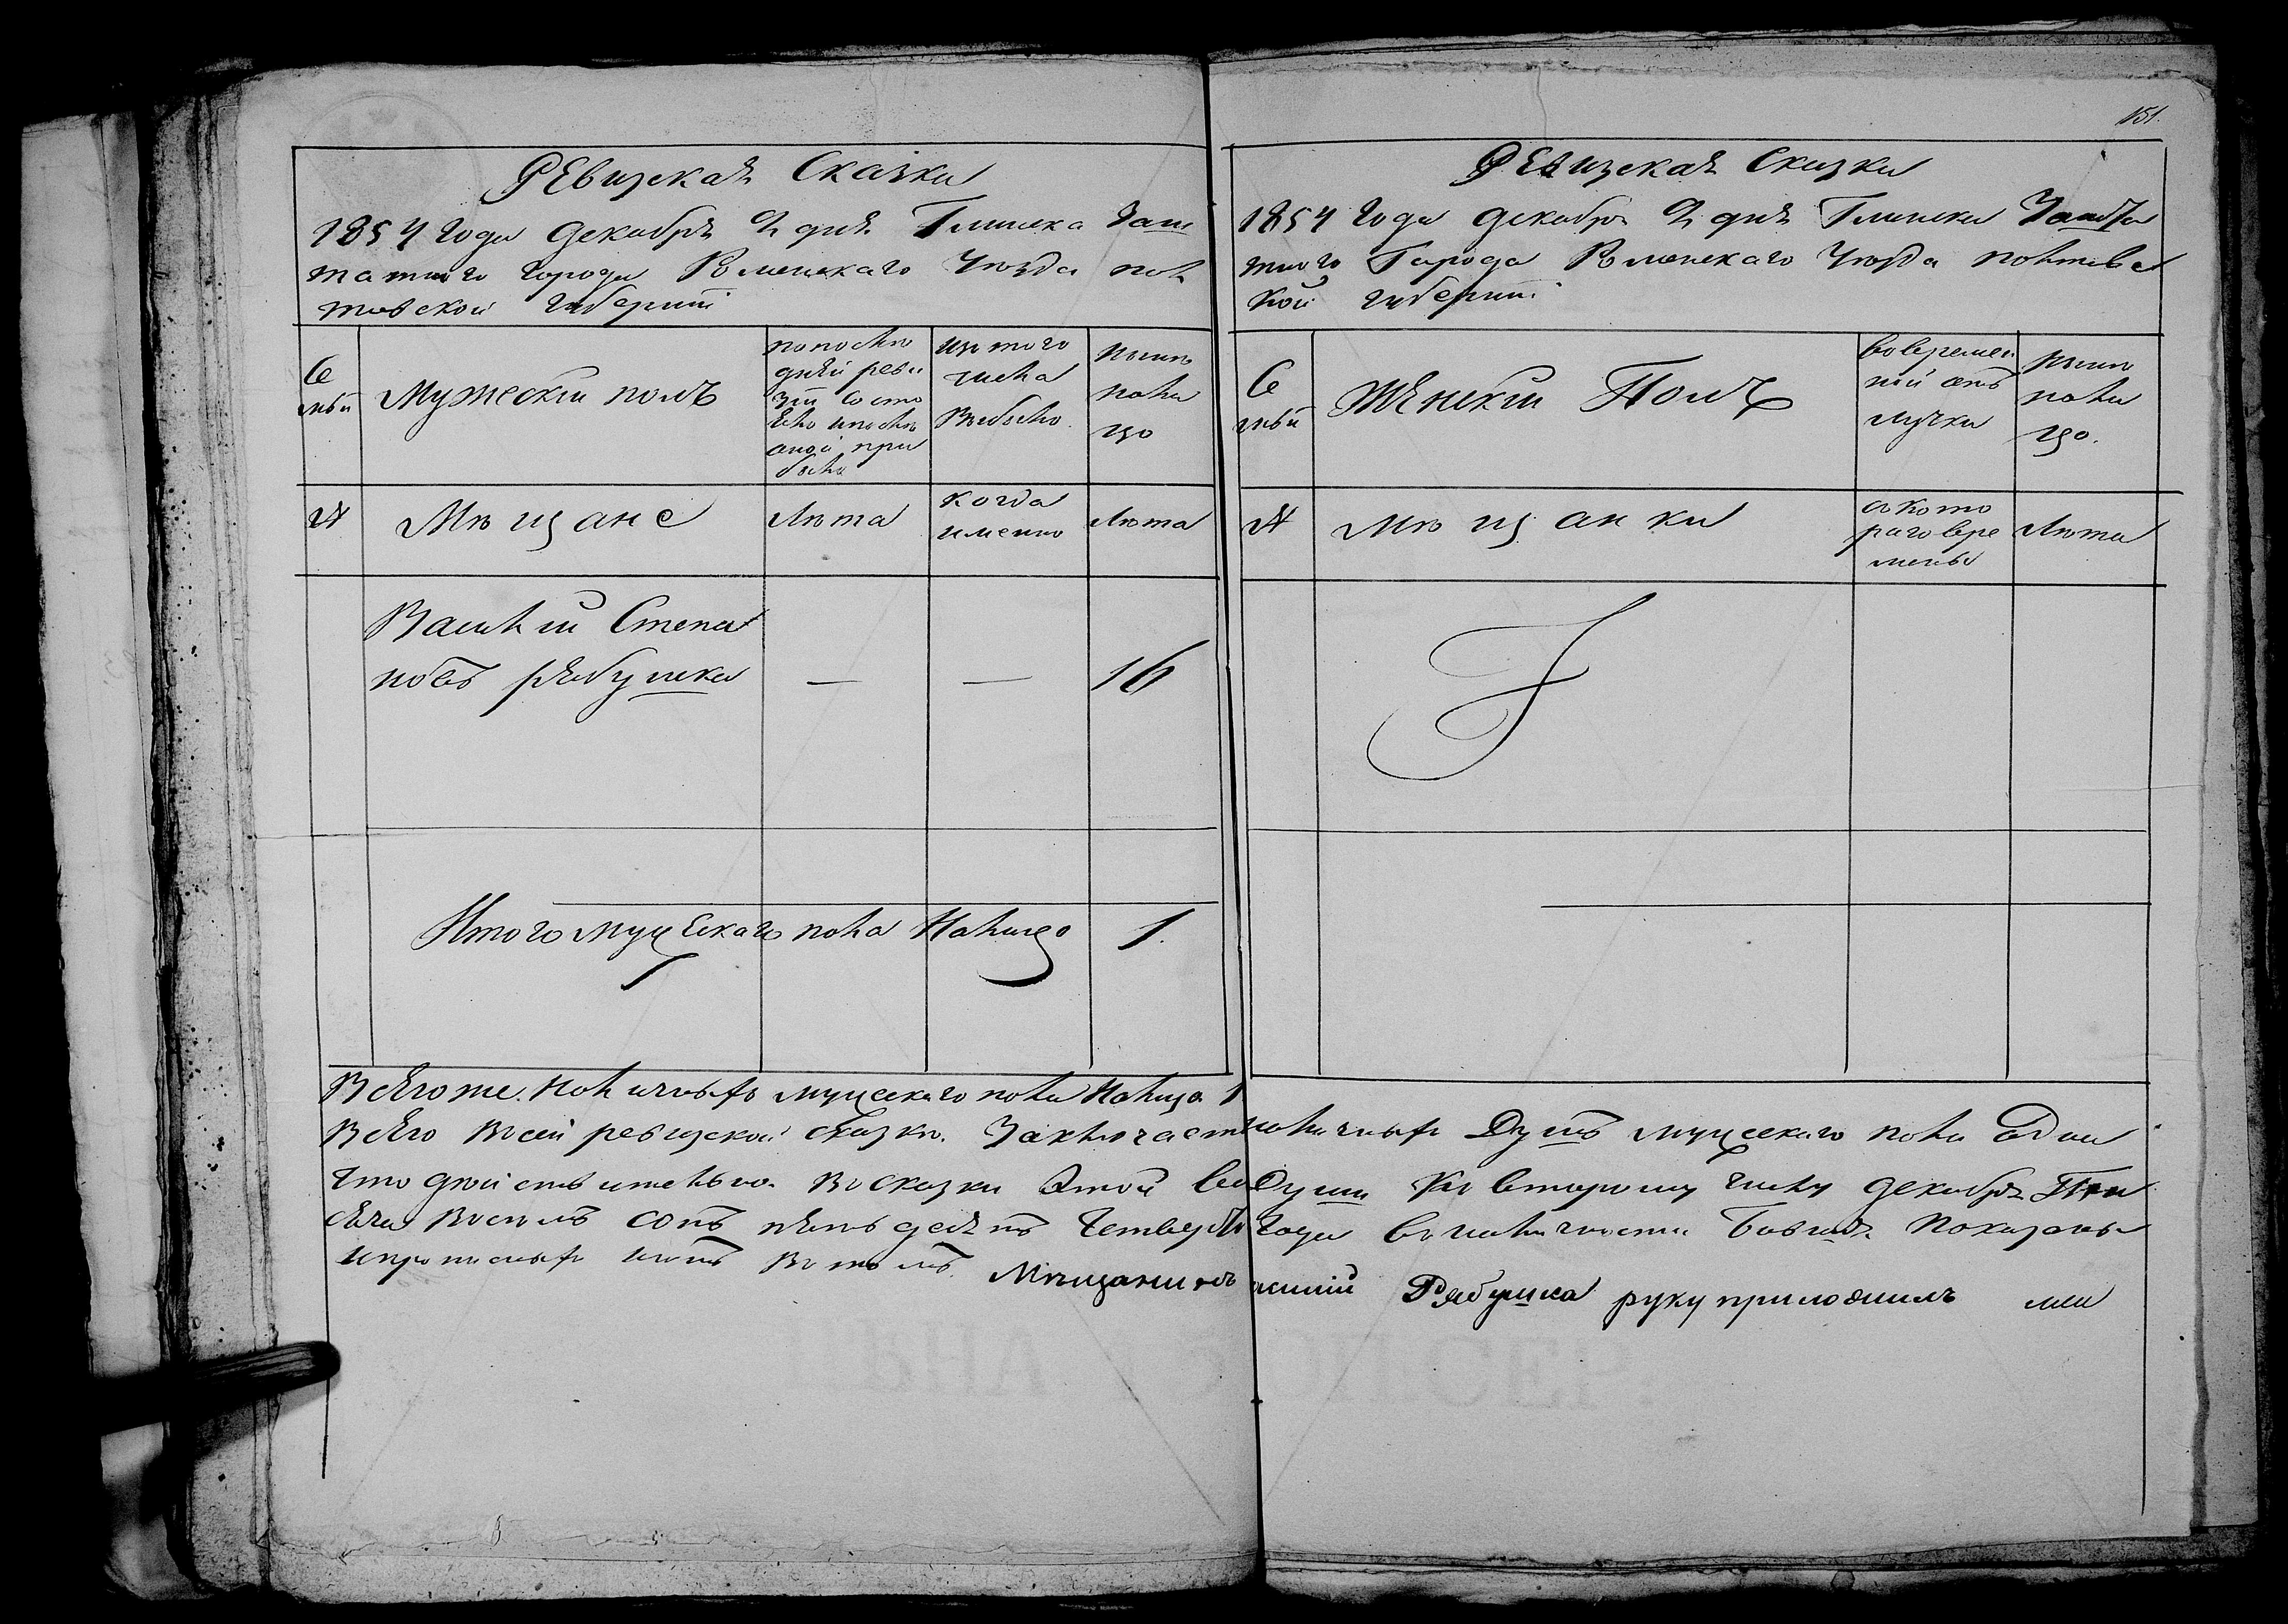 151.
Ревизская Сказка
1854 года декабря 2 дня Глинска Заш
татного города Роменскаго Уезда пол
тавской губернии
Се
мьи
Мужески полъ
попослѣ
дней реви
зіи состо
яло ипослѣ
оной при
было
изъ того
числа
Выбыло.
нынѣ
нали
цо
№
Мѣщане
Лѣта
когда
именно
Лѣта
Василий Степа
новъ рябушка
—
—
16
Итого мужескаго пола Налицо 1.
Ревизская Сказка
1854 года декабря 2 дня Глинска Зашта
тного Города Роменскаго Уезда полтавс
кой губернии
Се
мьи
Женский Полъ
вовремен
ной отъ
лучки
нынѣ
нали
цо.
№
Мѣщанки
ското
раго вре
мены
Лѣта
Всегоже. наличныхъ мужескаго пола Налицо 1
Всего Всей ревизской сказкѣ. Заключаетъ наличныхъ Душъ мужескаго пола Одна
Что дѣйствительно. Восказки Этой Все Души Ко второму числу декабря Тыся
сяча Восемъ сотъ пятьдесятъ Четверто Года вналичности Бывшая Показаны
ипрописныхъ нетъ Вътомъ. Мѣщанинъ Рябушка руку приложилъ